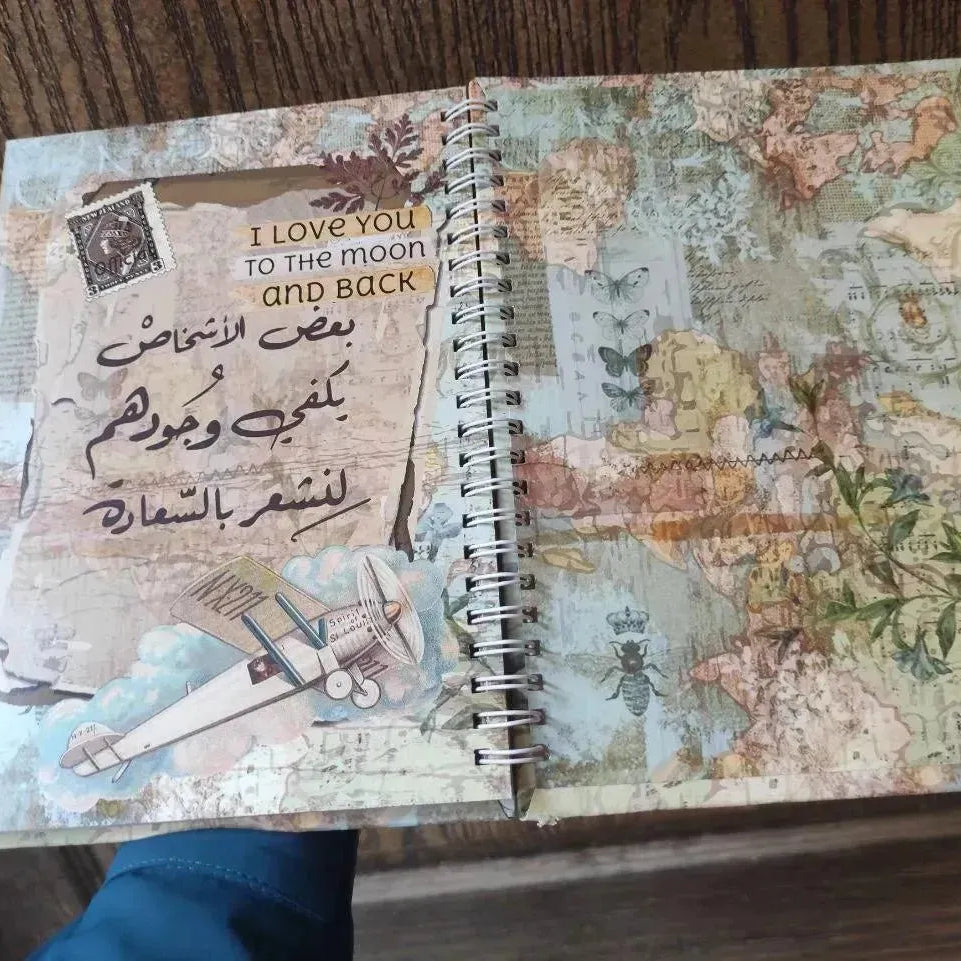 NEW ZEALAND
official
I LOVE YOU
TO THE MOON
AND BACK
بعض الأشخاصْ
يكفي وجُودهم
لنشعر بالسّعادة
NX211
Spirit
of
St Louis